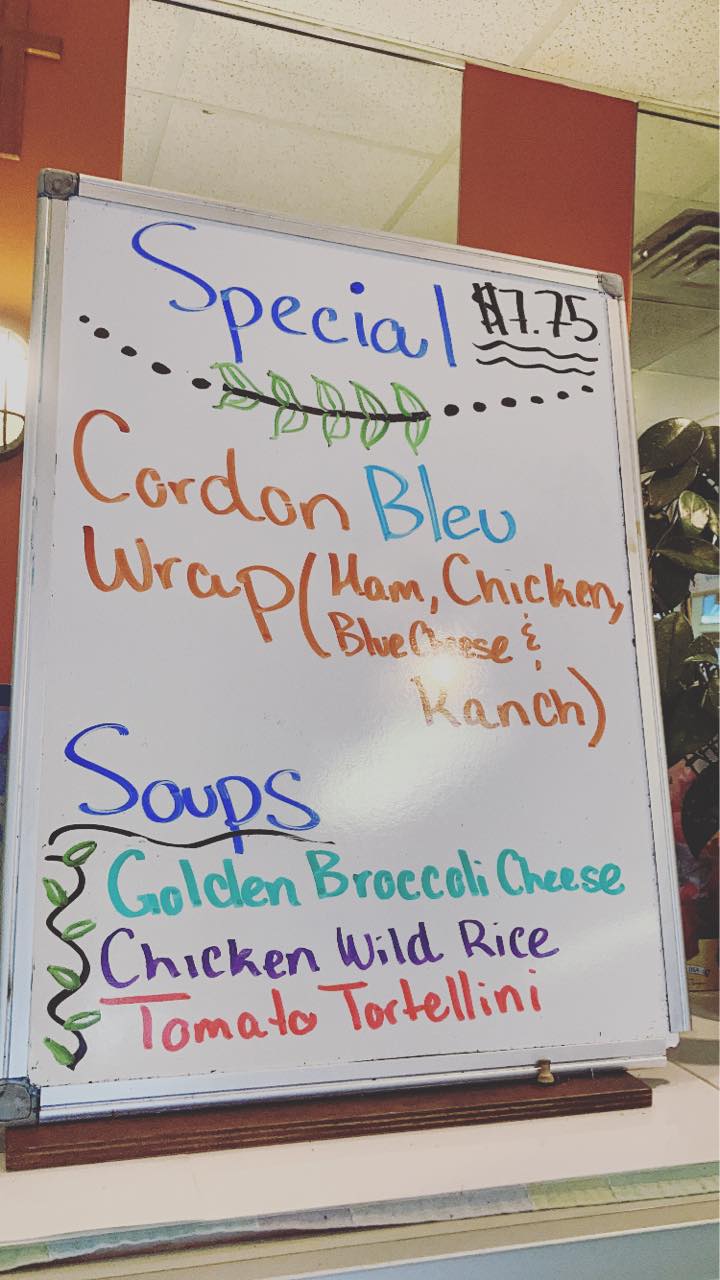 Special $7.75
Cordon Bleu
Wrap (Ham, Chicken,
Blue Cheese &
Ranch)
Soups
Golden Broccoli Cheese
Chicken Wild Rice
Tomato Tortellini